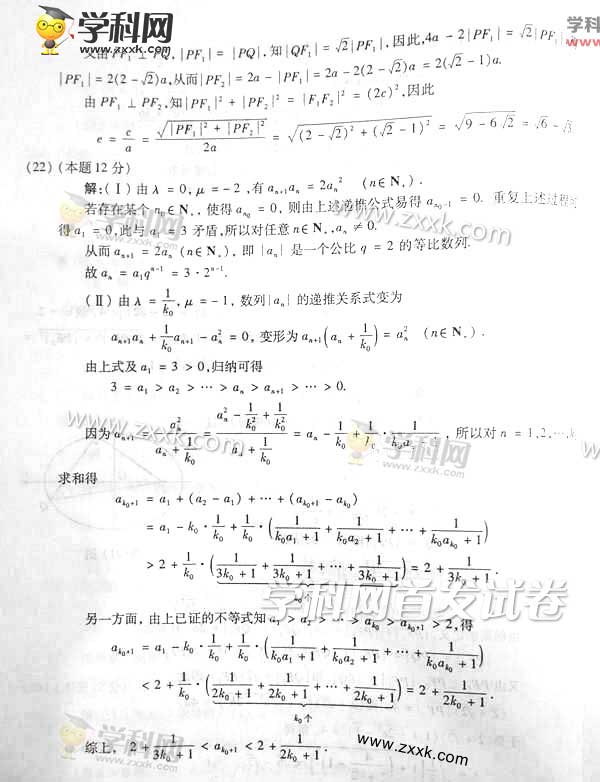 学科网
www.zxxk.com
学科
www.zxxk
又由PF₁⊥PQ,|PF₁| = |PQ|,知|QF₁| = √2|PF₁|,因此,4a − 2|PF₁| = √2|PF₁|
|PF₁| = 2(2 − √2)a,从而|PF₂| = 2a − |PF₁| = 2a − 2(2 − √2)a = 2(√2 − 1)a.
由 PF₁ ⊥ PF₂,知|PF₁|² + |PF₂|² = |F₁F₂|² = (2c)²,因此
e = c/a = √(|PF₁|² + |PF₂|²)/2a = √((2 − √2)² + (√2 − 1)²) = √(9 − 6√2) = √6 − √3
(22) (本题12分)
解:(Ⅰ)由 λ = 0, μ = −2 ,有 aₙ₊₁aₙ = 2aₙ² (n∈N₊).
若存在某个 n₀∈N₊, 使得 aₙ₀ = 0, 则由上述递推公式易得 aₙ₀₋₁ = 0. 重复上述过程
得 a₁ = 0,此与 a₁ = 3 矛盾,所以对任意 n∈N₊,aₙ ≠ 0.
从而 aₙ₊₁ = 2aₙ (n∈N₊), 即 {aₙ} 是一个公比 q = 2 的等比数列.
故 aₙ = a₁qⁿ⁻¹ = 3·2ⁿ⁻¹.
(Ⅱ)由 λ = 1/k₀, μ = −1, 数列{aₙ} 的递推关系式变为
aₙ₊₁aₙ + (1/k₀)aₙ₊₁ − aₙ² = 0, 变形为 aₙ₊₁(aₙ + 1/k₀) = aₙ² (n∈N₊).
由上式及 a₁ = 3 > 0,归纳可得
3 = a₁ > a₂ > ⋯ > aₙ > aₙ₊₁ > ⋯ > 0.
因为 aₙ₊₁ = aₙ²/(aₙ + 1/k₀) = (aₙ² − 1/k₀² + 1/k₀²)/(aₙ + 1/k₀) = aₙ − 1/k₀ + 1/k₀ · , 所以对 n = 1,2,⋯,
求和得
aₖ₀₊₁ = a₁ + (a₂ − a₁) + ⋯ + (aₖ₀₊₁ − aₖ₀)
= a₁ − k₀·1/k₀ + 1/k₀·(1/(k₀a₁ + 1) + 1/(k₀a₂ + 1) + ⋯ + 1/(k₀aₖ₀ + 1))
> 2 + 1/k₀·(1/(3k₀ + 1) + 1/(3k₀ + 1) + ⋯ + 1/(3k₀ + 1)) = 2 + 1/(3k₀ + 1).
k₀个
学科网首发试卷
另一方面, 由上已证的不等式知 a₁ > a₂ > ⋯ > aₖ₀ > aₖ₀₊₁ > 2,得
aₖ₀₊₁ = a₁ − k₀·1/k₀ + 1/k₀·(1/(k₀a₁ + 1) + 1/(k₀a₂ + 1) + ⋯ + 1/(k₀aₖ₀ + 1))
< 2 + 1/k₀·(1/(2k₀ + 1) + 1/(2k₀ + 1) + ⋯ + 1/(2k₀ + 1)) = 2 + 1/(2k₀ + 1).
k₀个
综上, 2 + 1/(3k₀ + 1) < aₖ₀₊₁ < 2 + 1/(2k₀ + 1).
学科网
www.zxxk.com